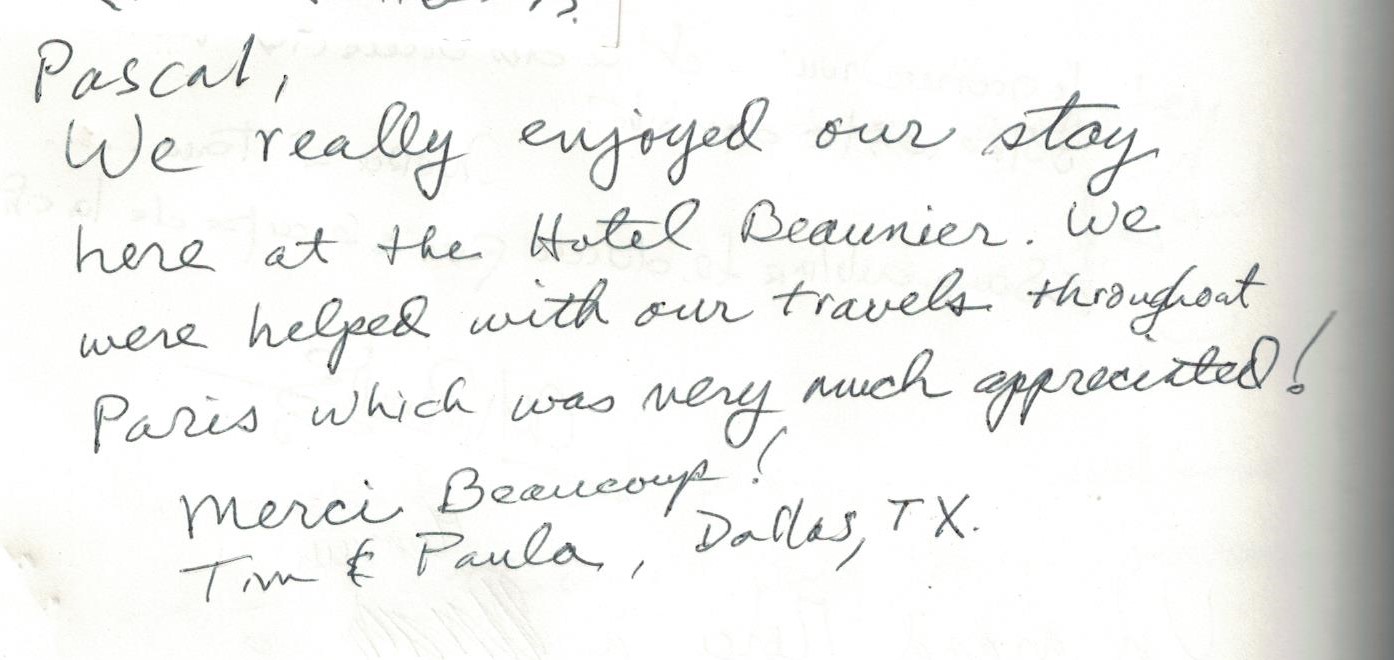 Pascal,
We really enjoyed our stay
here at the Hotel Beaunier. We
were helped with our travels throughout
Paris which was very much appreciated!
Merci Beaucoup!
Tim & Paula, Dallas, TX.